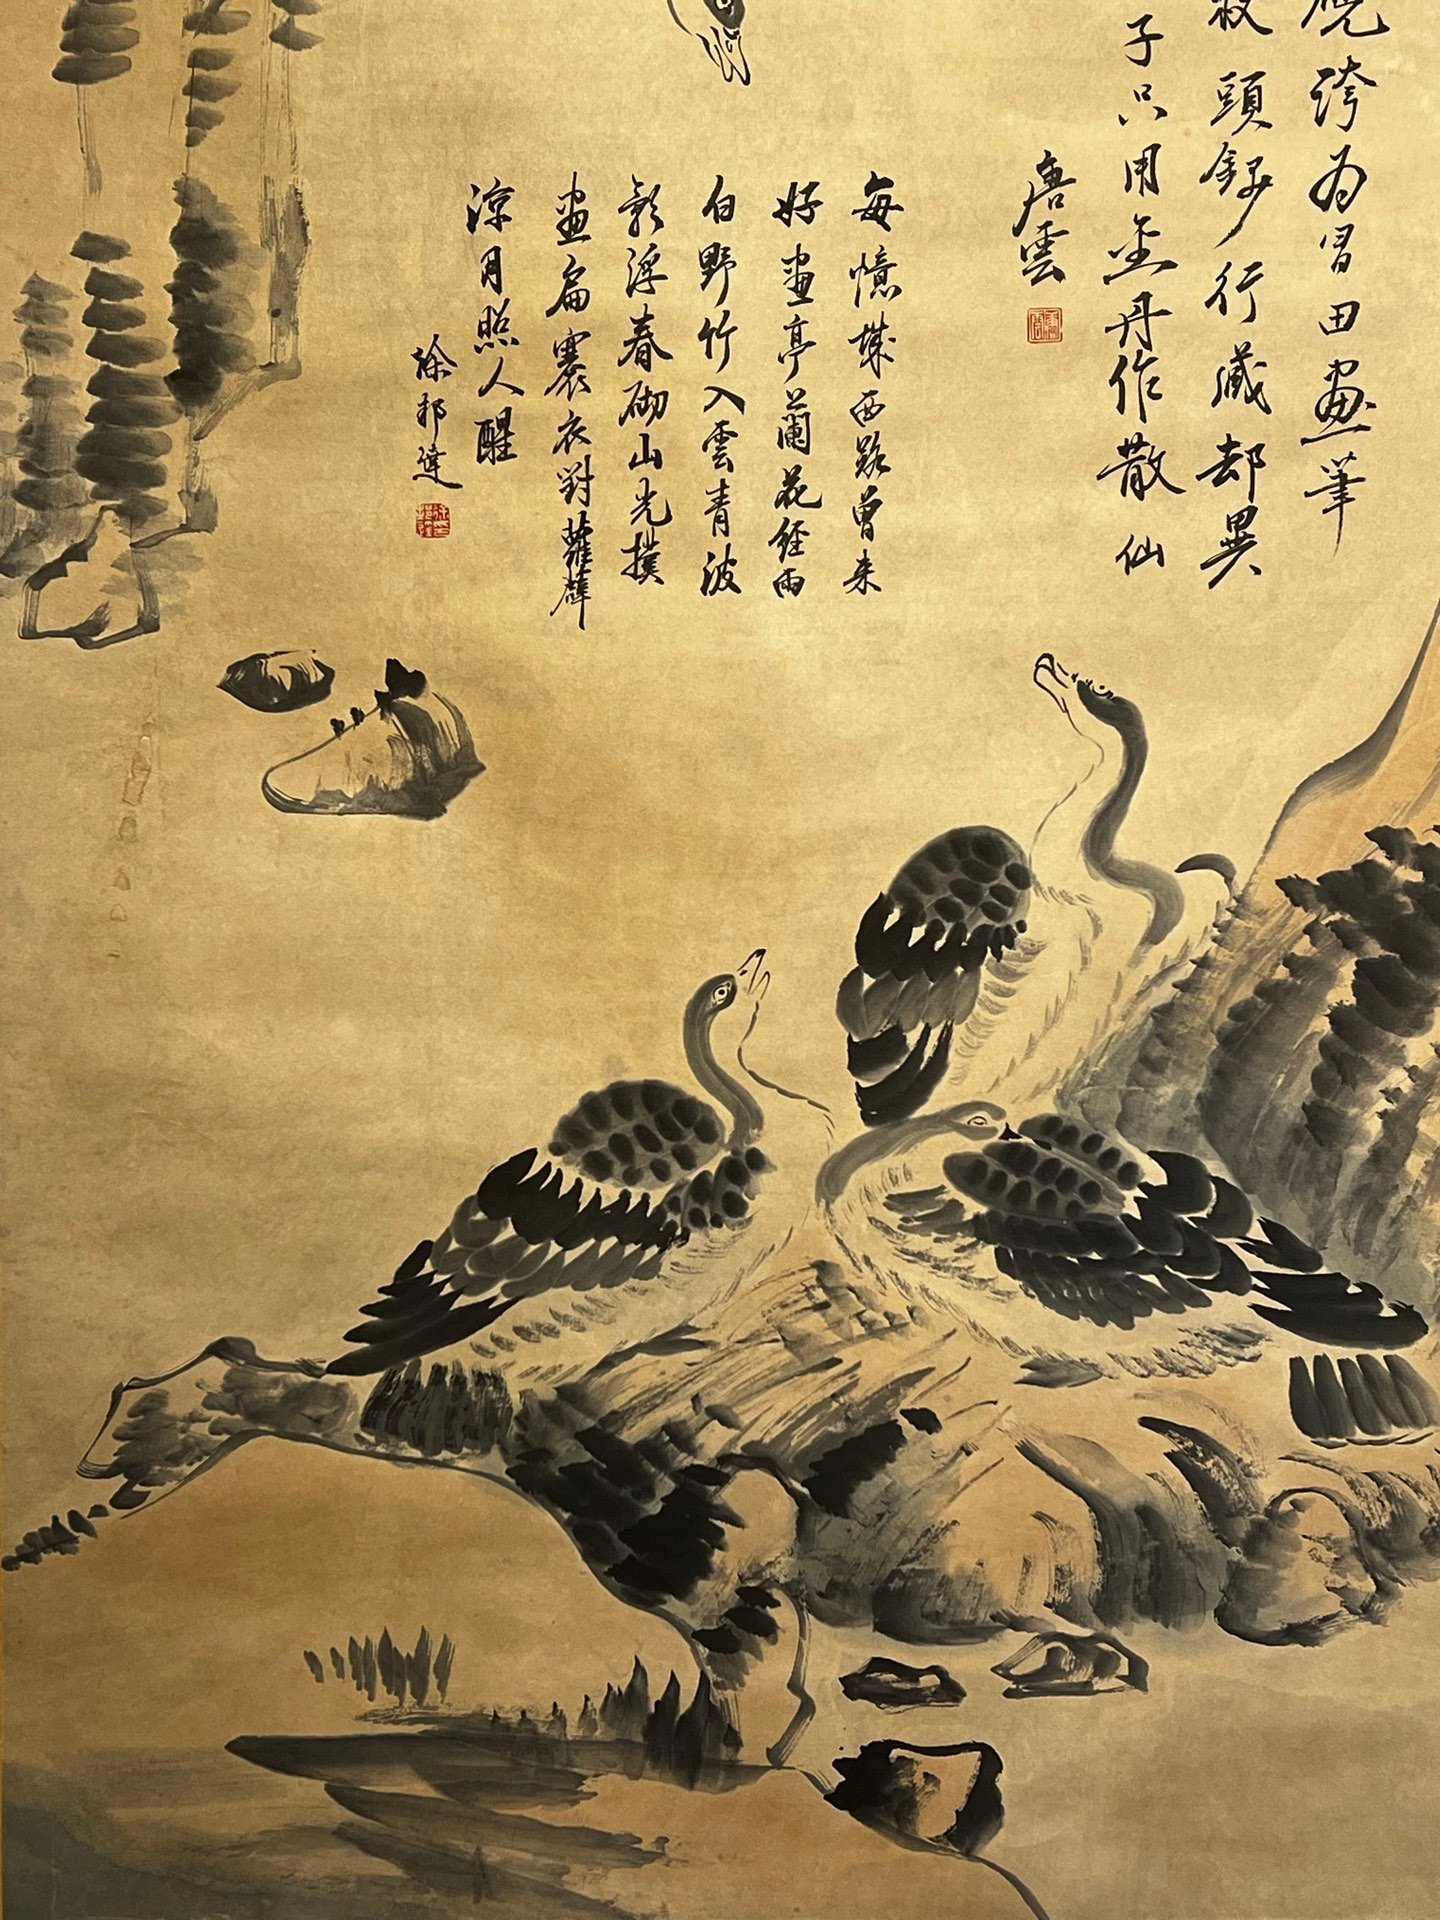 誇為習田畫筆
頭銀行藏却異
子只用金丹作散仙
唐雲
每憶城西路曾来
好畫亭蘭花經雨
白野竹入雲青波
影浮春砌山光撲
畫扁褰衣對蘿薜
涼月照人醒
徐邦達